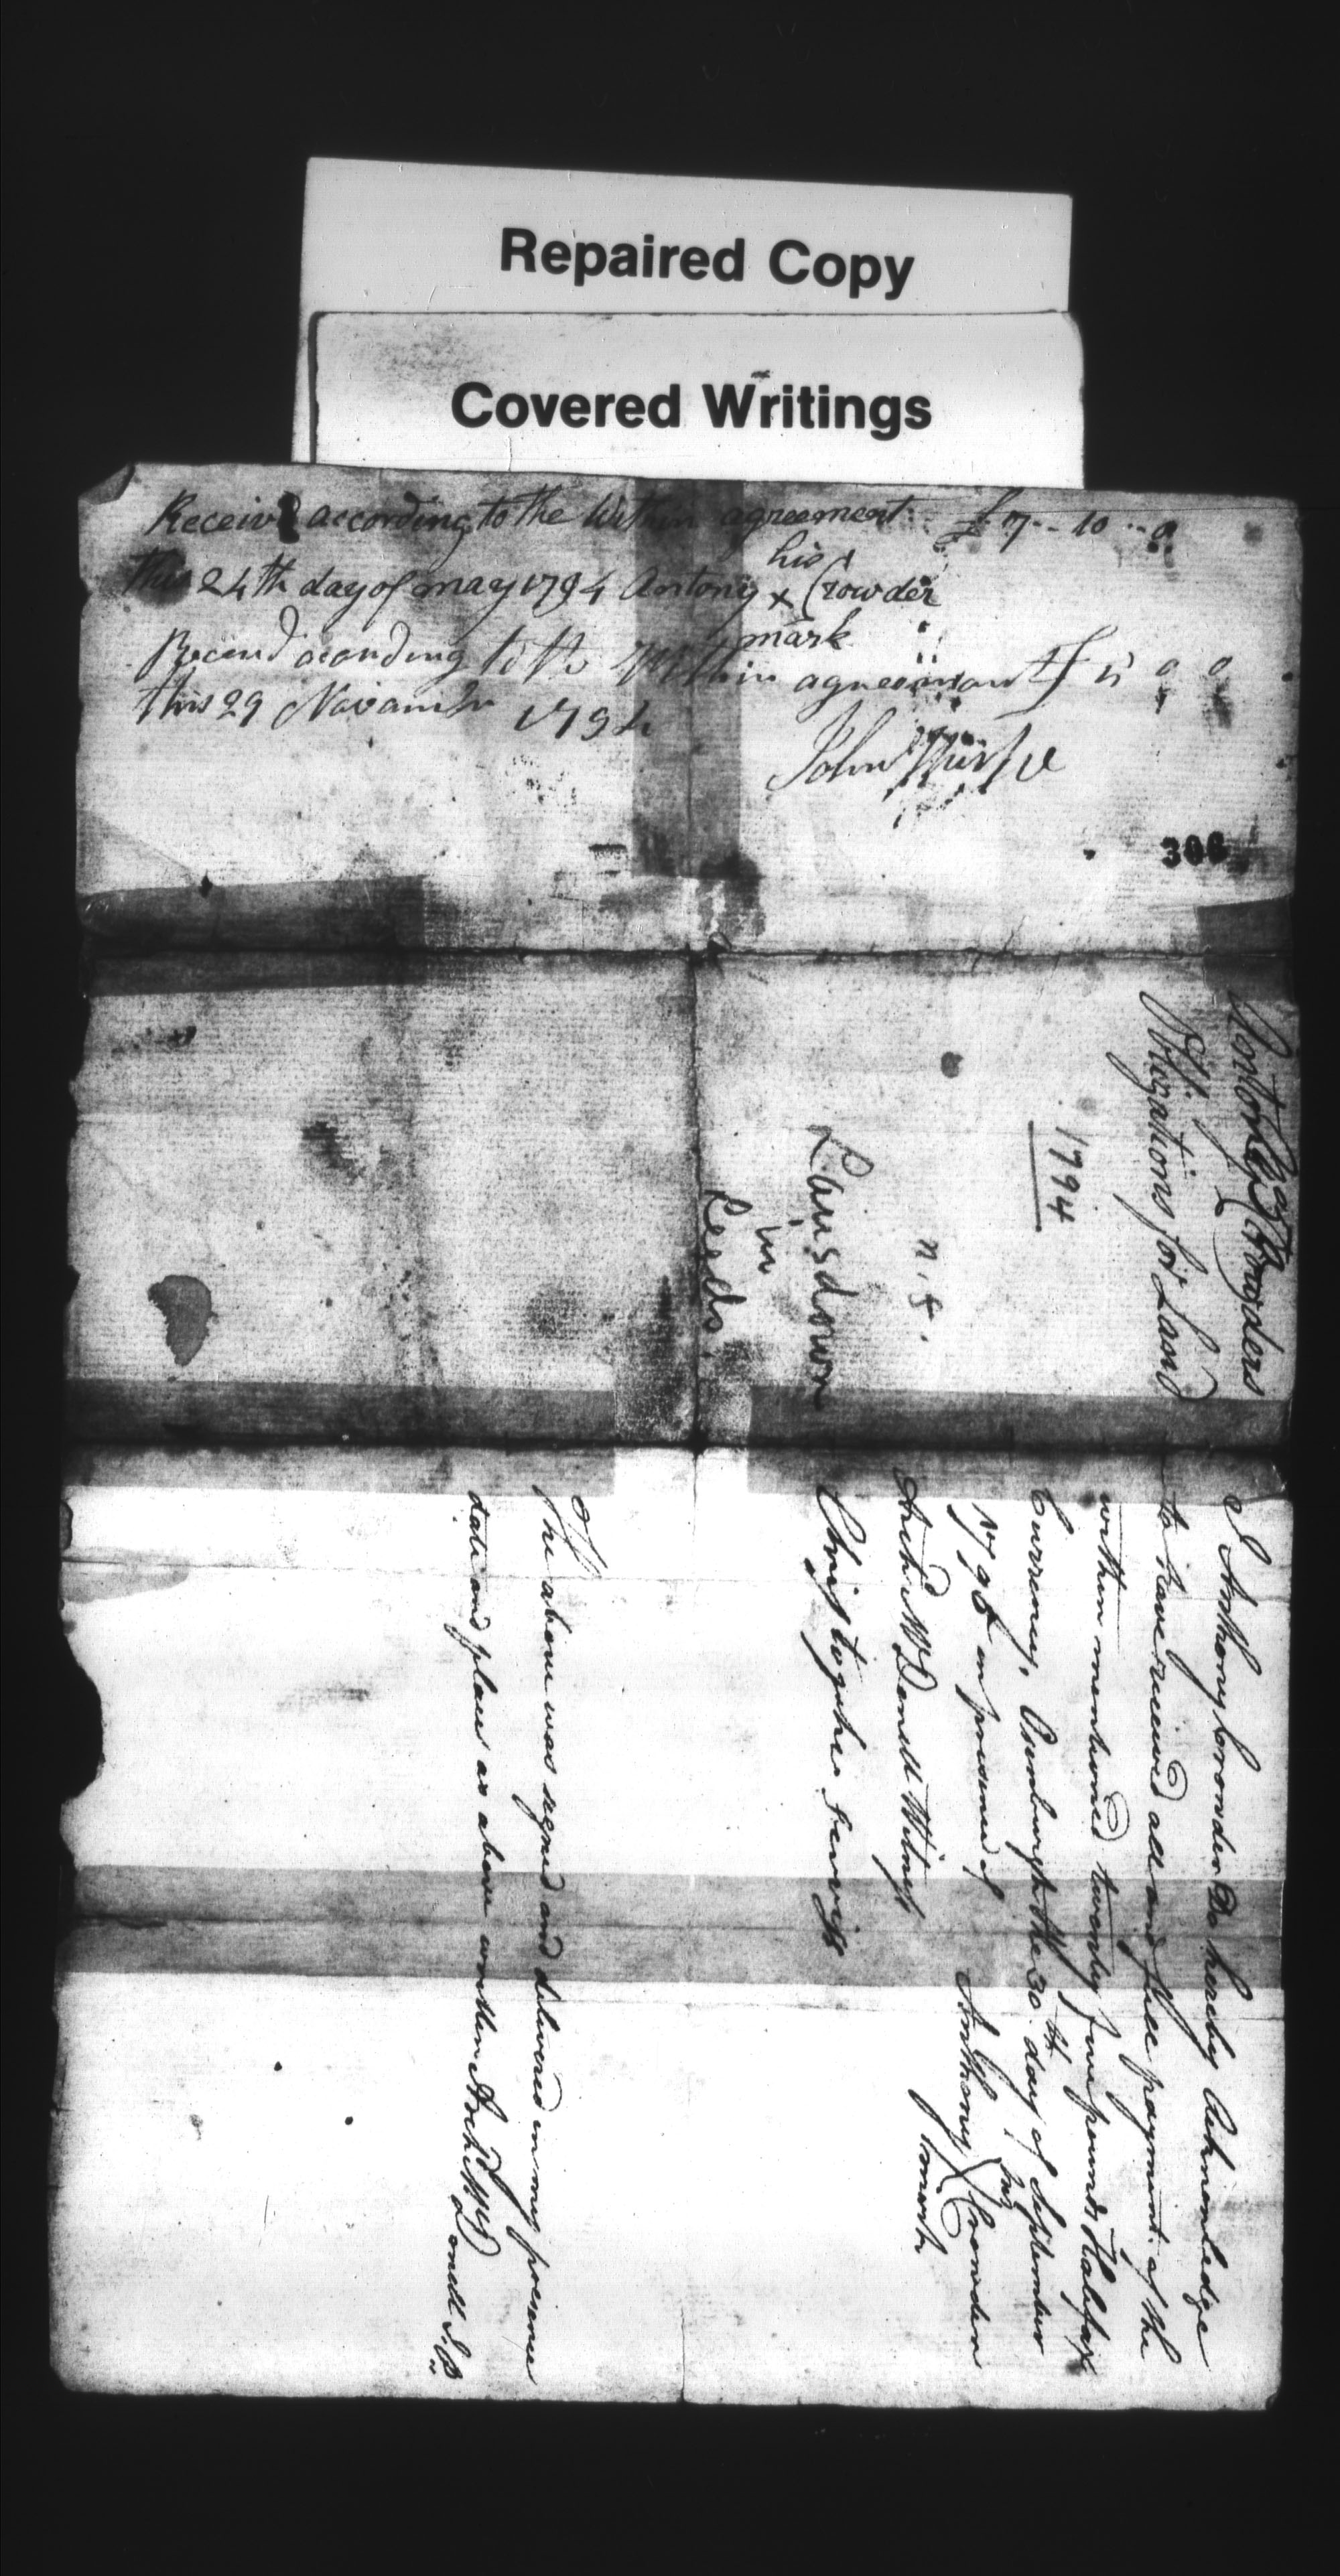 Repaired Copy
Covered Writings
Receivd according to the Within agreement £7 -- 10 -- 0
this 24th day of may 1794 Antony his x mark Crowder
Receivd acording to the Within agreement £ 5 0 0
this 29 Novambr 1794
John
306
Crowders
Obligations for Land
1794
n. 8.
Lansdown
in
Leeds.
I Anthony Crowder Do hereby Acknowledge
to have received all and full payment of the
within mentioned twenty five pounds Halifax
Currency, Osnaburgh the 30th day of September
in presence of Anthony his x mark Crowder
Archd McDonell Witness
Christopher
The above was signed and delivered in my presence
date and place as above written Archd McDonell J.P.